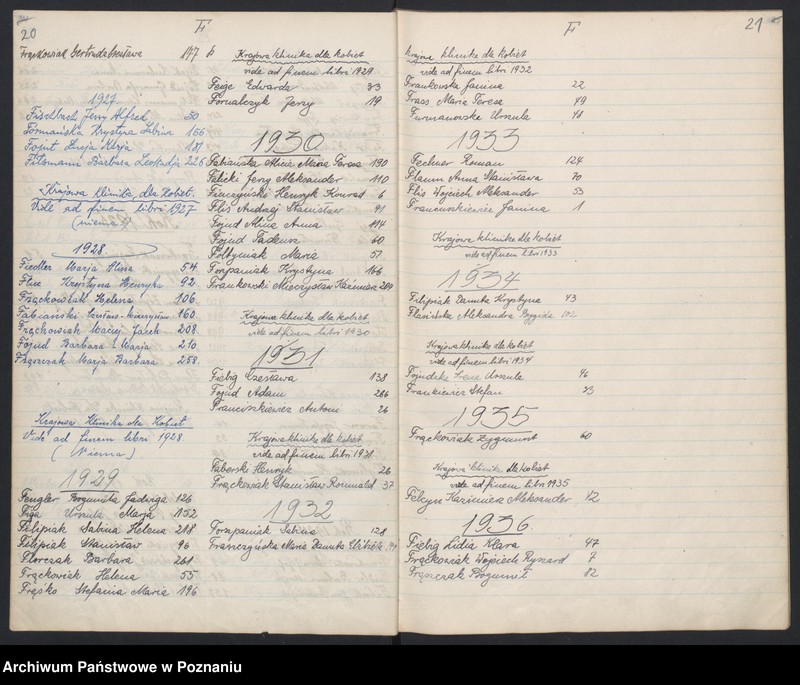 20
F
Frąckowiak Gertruda Czesława 147
1927.
Fischbach Jerzy Alfred 50
Formańska Krystyna Sabina 166
Fojut Łucja Marja 181
Fitzmann Barbara Leokadja 226
Krajowa klinika dla kobiet.
Vide ad finem libri 1927
(niema)
1928.
Fiedler Marja Alina 54
Flux Krystyna Henryka 92
Frąckowiak Helena 106
Fabiański Czesław-Mieczysław 160
Frąckowiak Maciej Jacek 208
Fojud Barbara Marja 210
Frąszczak Marja Barbara 258
Krajowa Klinika dla Kobiet
Vide ad finem libri 1928.
(Niema)
1929
Fengler Bogumiła Jadwiga 126
Figa Urszula Marja 152
Filipiak Sabina Helena 218
Filipiak Stanisław 96
Florczak Barbara 261
Frąckowiak Helena 55
Frąśko Stefania Maria 196
Krajowa klinika dla kobiet
vide ad finem libri 1929
Feige Edwarda 33
Fornalczyk Jerzy 119
1930
Fabiańska Alicia Maria Teresa 190
Falicki Jerzy Aleksander 110
Henryk Konrad 6
Flis Andrzej Stanisław 91
Fojud Alina Anna 114
Fojud Tadeusz 60
Foltyniak Maria 57
Forpaniak Krystyna 166
Frankowski Mieczysław Kazimierz
Krajowa klinika dla kobiet
vide ad finem libri 1930
1931
Fiebig Czesława 138
Fojud Adam 286
Franciszkiewicz Antoni 26
Krajowa klinika dla kobiet
vide ad finem libri 1931
Faberski Henryk 26
Frąckowiak Stanisław Romuald 37
1932
Forszpaniak Sabina 128
Franczyńska Maria Danuta Elżbieta
21
F
Krajowa klinika dla kobiet
vide ad finem libri 1932
Frankowska Janina 22
Frass Maria Teresa 49
Furmanowska Urszula 48
1933
Fechner Roman 124
Flaum Anna Stanisława 70
Flis Wojciech Aleksander 53
Franciszkiewicz Janina 1
Krajowa klinika dla kobiet
vide ad finem libri 1933
1934
Filipiak Danuta Krystyna 43
Flasińska Aleksandra Brygida 102
Krajowa klinika dla kobiet
vide ad finem libri 1934
Fojudzka Irena Urszula 46
Frankiewicz Stefan 23
1935
Frąckowiak Zygmunt 60
Krajowa klinika dla kobiet
vide ad finem libri 1935
Felcyn Kazimierz Aleksander 12
1936
Fiebig Lidia Klara 47
Frąckowiak Wojciech Ryszard 7
Frąszczak Bogumił 82
Archiwum Państwowe w Poznaniu